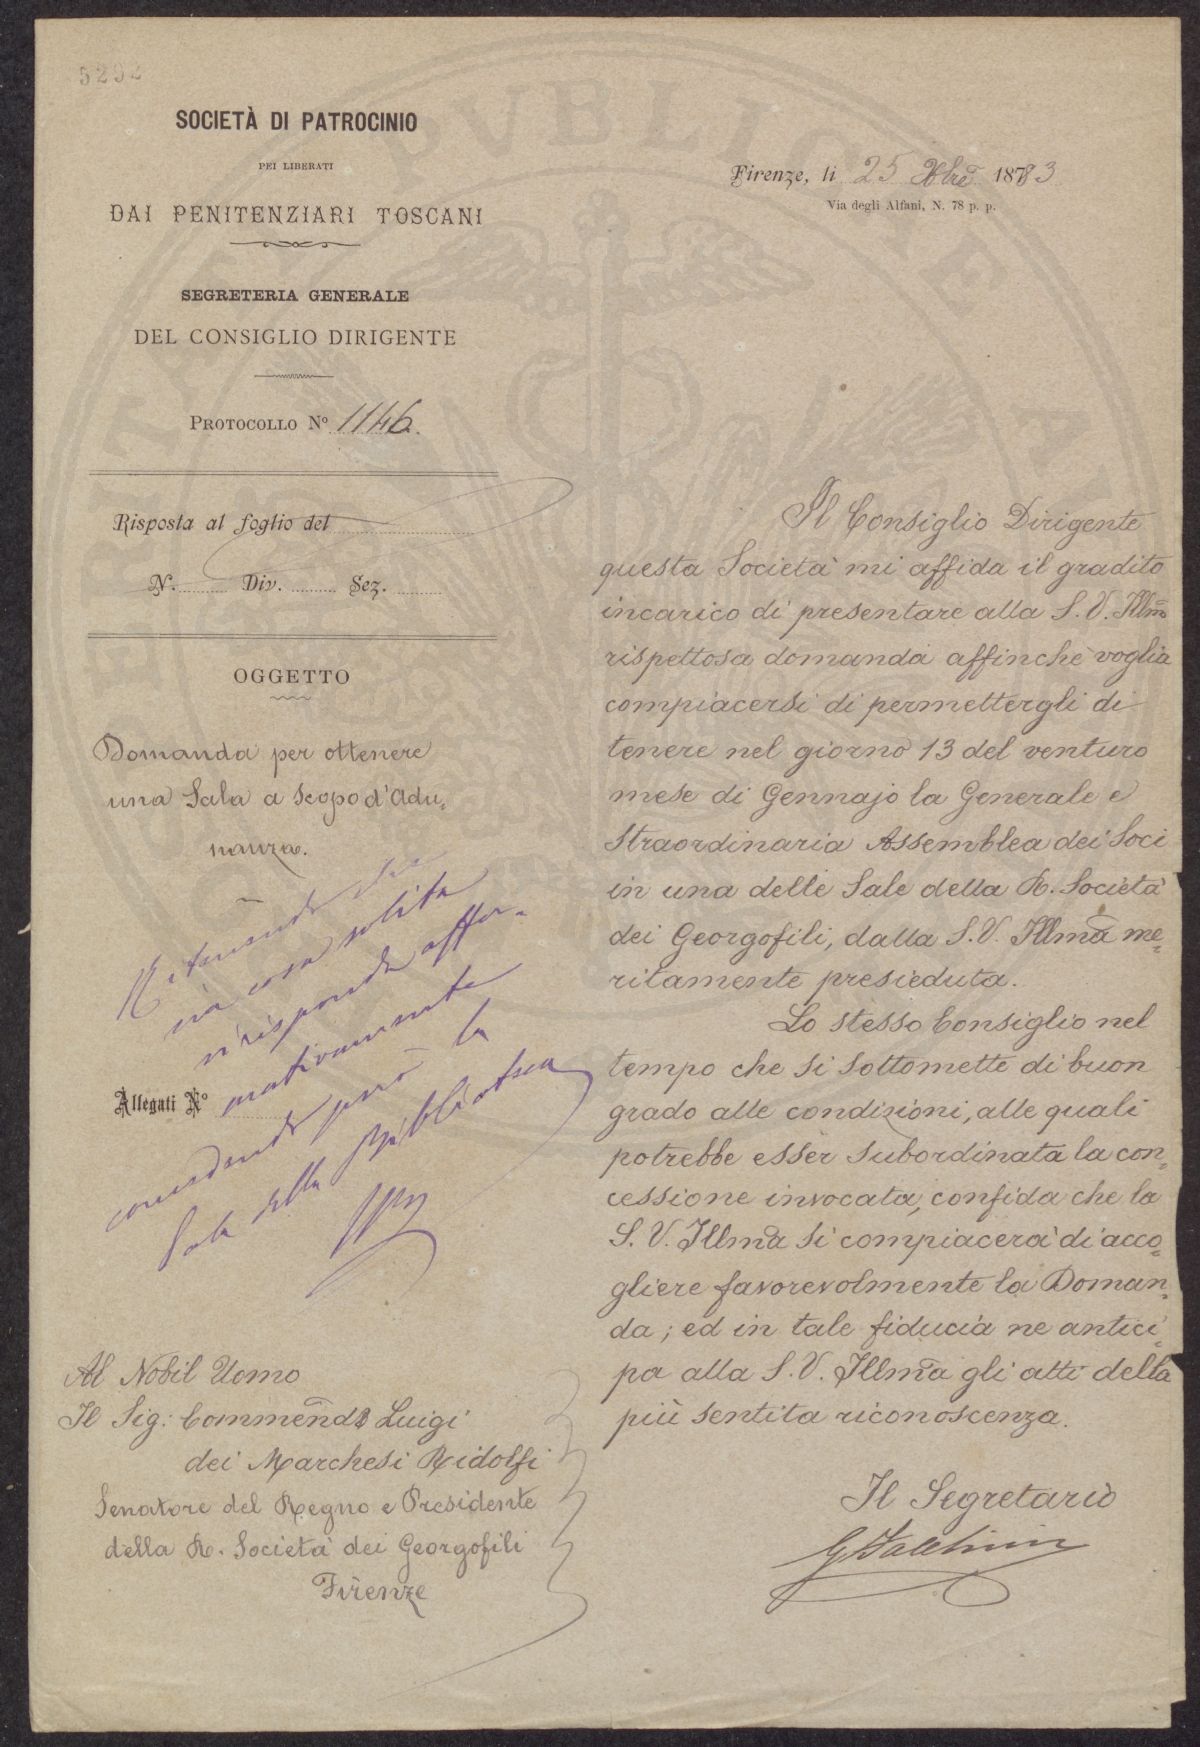 5292
SOCIETÀ DI PATROCINIO
PEI LIBERATI
DAI PENITENZIARI TOSCANI
SEGRETERIA GENERALE
DEL CONSIGLIO DIRIGENTE
PROTOCOLLO Nº 1146.
Risposta al foglio del
N. Div. Sez.
OGGETTO
Domanda per ottenere
una Sala a scopo d'Adu„
nanza.
Ritenendo che
sia cosa solita
si risponda affer-
mativamente
concedendo però la
Sala della Biblioteca
Allegati Nº
Al Nobil Uomo
Il Sig: Commend Luigi
dei Marchesi Ridolfi
Senatore del Regno e Presidente
della R. Società dei Georgofili
Firenze
Firenze, li 25 Xbre 1883
Via degli Alfani, N. 78 p. p.
Il Consiglio Dirigente
questa Società mi affida il gradito
incarico di presentare alla S. V. Illma
rispettosa domanda affinchè voglia
compiacersi di permettergli di
tenere nel giorno 13 del venturo
mese di Gennajo la Generale e
straordinaria Assemblea dei Soci
in una delle Sale della R. Società
dei Georgofili, dalla S. V. Illma me„
ritamente presieduta.
Lo stesso Consiglio nel
tempo che si sottomette di buon
grado alle condizioni, alle quali
potrebbe esser subordinata la con„
cessione invocata, confida che la
S. V. Illma si compiacerà di acco„
gliere favorevolmente la Doman„
da; ed in tale fiducia ne antici„
pa alla S. V. Illma gli atti della
più sentita riconoscenza.
Il Segretario